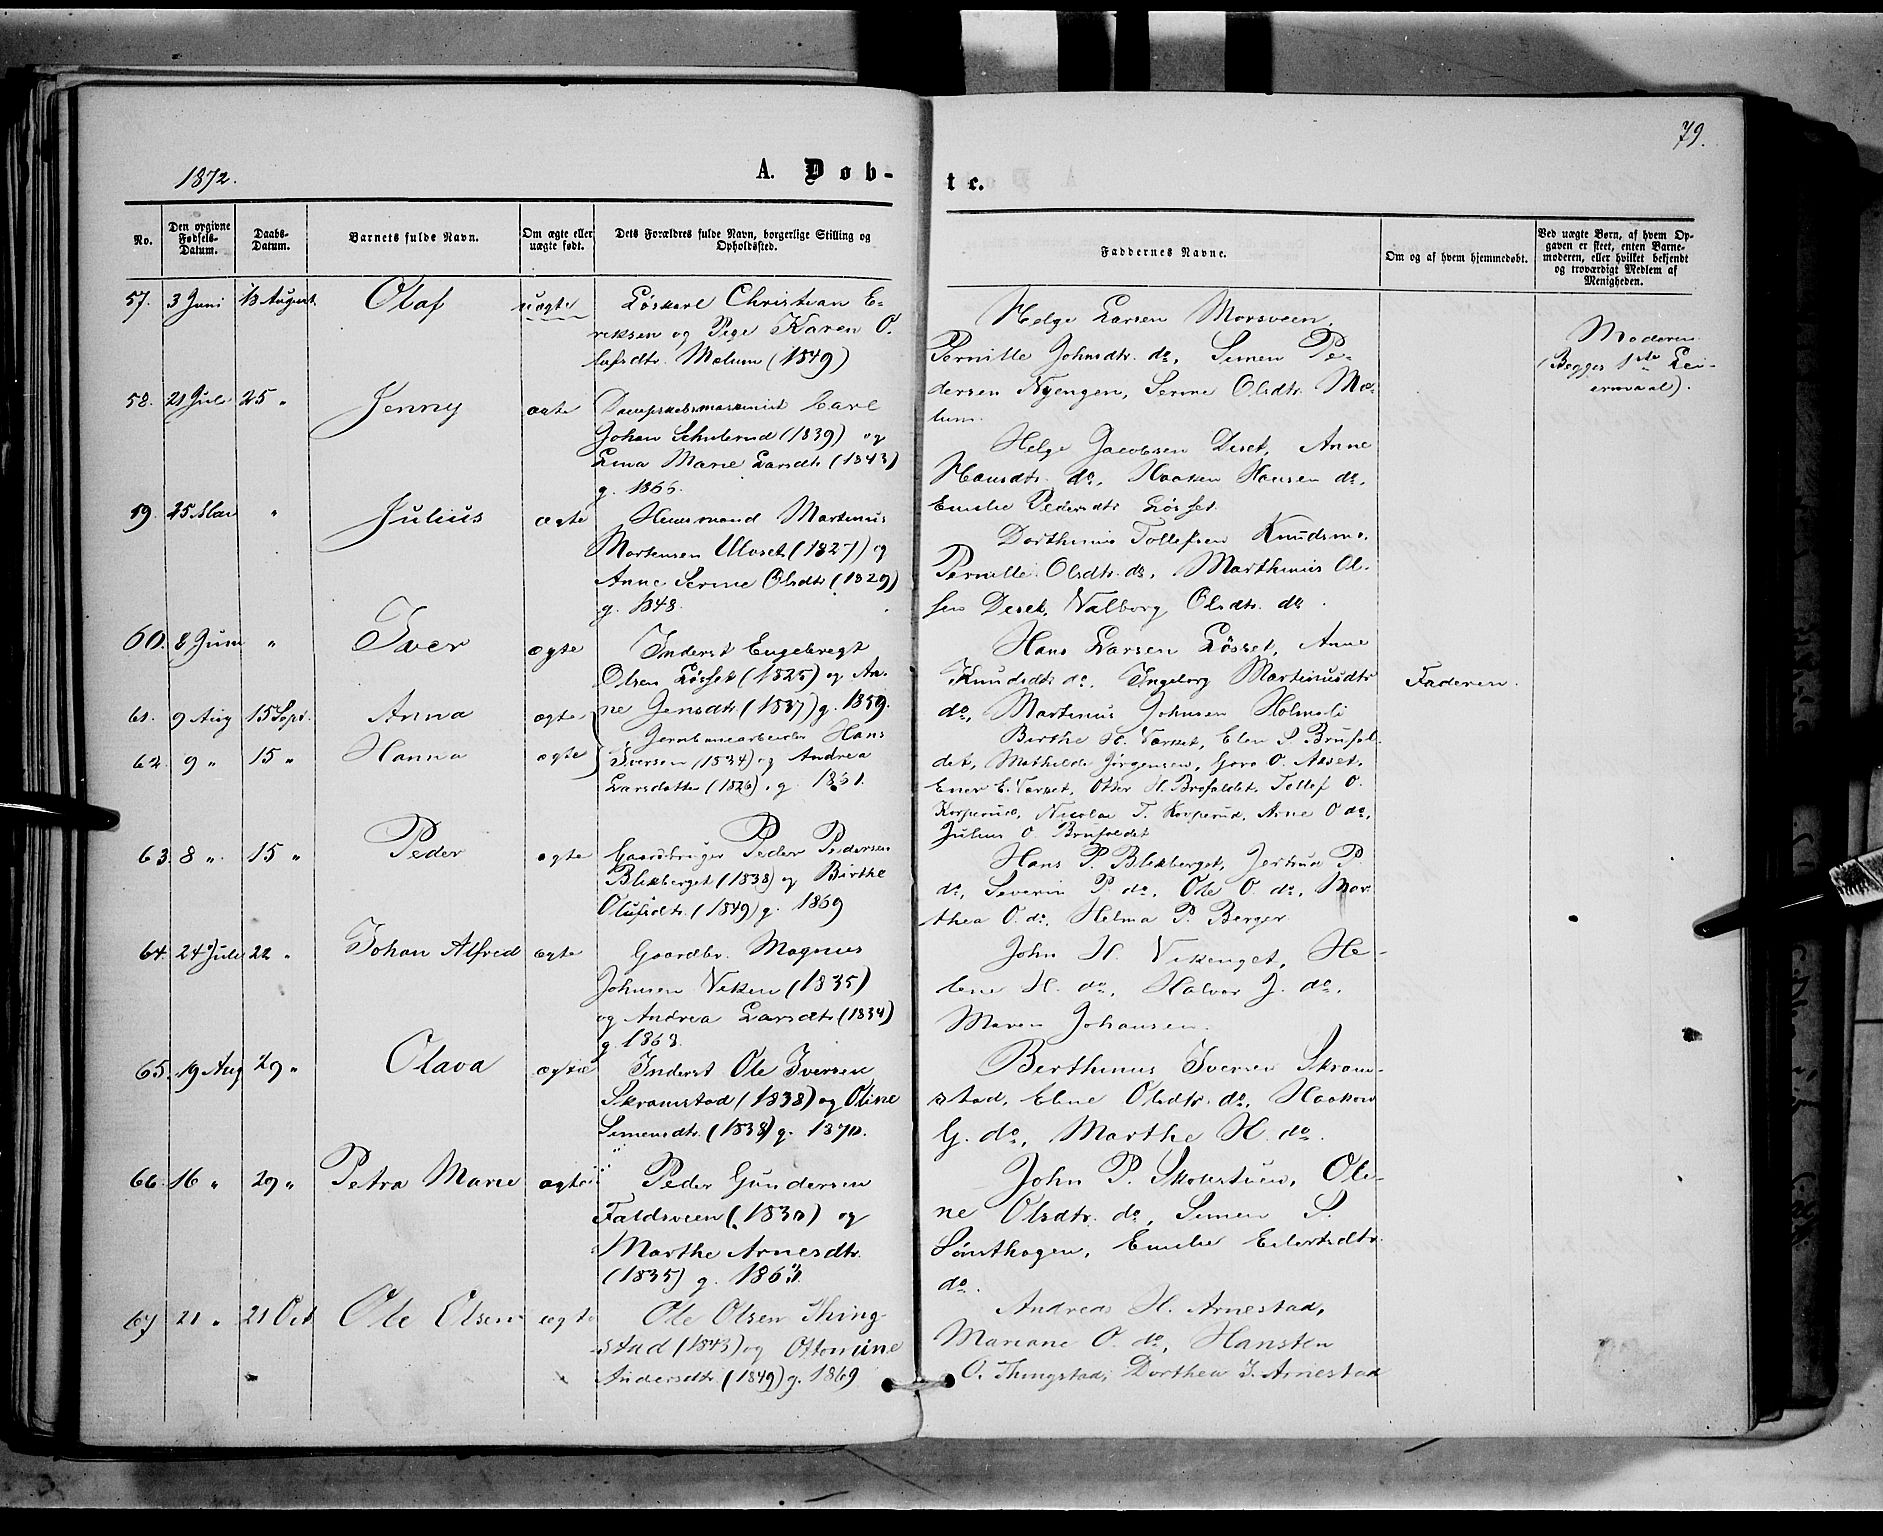 79.
1872.
A. Døb-
te.
No.
Den opgivne Fødsels-Datum.
Daabs-Datum.
Barnets fulde Navn.
Om ægte eller uægte født.
Dets Forældres fulde Navn, borgerlige Stilling og Opholdssted.
Faddernes Navne.
Om og af hvem hjemmedøbt.
Ved uægte Børn, af hvem Opgaven er skeet, enten Barnemoderen, eller hvilket bekjendt og troværdigt Medlem af Menigheden.
57. 3 Juni 13 August. Olaf uægte
Løskarl Christian E-
riksen og Pige Karen O.
lafsdtr. Mælum (1849)
Helge Larsen Morsveen,
Pernille Johnsdtr. do, Simen Pe-
dersen Nyengen, Serine Olsdtr. Mæ-
lum.
Moderen.
(Begges 1ste Lei-
ermaal).
58. 21 Juli 25 " Jenny ægte
Dampskibsmaskinist Carl
Johan Schulerud (1839) og
Lina Marie Larsdtr (1843)
g. 1866.
Helge Jacobsen Deset, Anne
Hansdtr. do, Haaken Hansen do,
Emilie Pedersdtr Løsset.
59. 25 Mai " Julius ægte
Huusmand Martinus
Mortensen Ulvset (1827) og
Anne Serine Olsdtr (1829)
g. 1848.
Dorthinus Tollefsen Knudsmo,
Pernille Olsdtr. do, Marthinus Ol-
sen Deset, Valborg Olsdtr. do.
60. 8 Juni " Iver ægte
Inderst Engebregt
Olsen Løsset (1825) og An-
ne Jensdtr (1837) g. 1859.
Hans Larsen Løsset, Anne
Knudsdtr do. Ingeborg Martinusdtr
do, Martinus Johnsen Holmeli
Faderen.
61. 9 Aug 15 Sept. Anna ægte
62. 9 " 15 " Hanna ægte
Jernbanearbeider Hans
Iversen (1834) og Andrea
Larsdatter (1826), g. 1861.
Birthe H. Tørset, Elen P. Brufol-
det, Mathilde Jørgensen, Goro O. Alset,
Ener E. Tørset, Otter H. Brufoldet, Tollef O.
Korperud, Nicolai T. Korperud, Arne O do,
Julius O. Brufoldet
63. 8 " 15 " Peder ægte
Gaardbruger Peder Pedersen
Blekberget (1838) og Birthe
Olufsdtr. (1849) g. 1869
Hans P. Blekberget, Jertrud P.
do, Severin P. do, Ole O. do, Mar-
thea O. do, Helma P. Berger.
64. 24 Juli 22 " Johan Alfred ægte
Gaardbr. Magnus
Johnsen Viken (1835)
og Andrea Larsdtr (1834)
g. 1863.
John H. Vikenget, He-
lene H. do, Halvor J. do,
Maren Johansen.
65. 19 Aug 29 " Olava ægte
Inderst Ole Iversen
Skramstad (1838) og Oline
Simensdtr. (1838) g. 1870.
Berthinus Iversen Skram-
stad, Eline Olsdtr. do, Haakon
G. do, Marthe H. do.
66. 16 " 29 " Petra Marie ægte
" Peder Gundersen
Faldsveen (1830) og
Marthe Arnesdtr.
(1835) g. 1863.
John P. Skolestuen, Oli-
ne Olsdtr. do, Simen S.
Sønsthagen, Emilie Eilertsdtr.
do.
67 21 " 21 Oct Ole Olsen ægte
Ole Olsen Thing-
stad (1843) og Ottomine
Andersdtr. (1849) g. 1869
Andreas H. Arnestad,
Mariane O. do, Hansten
O. Thingstad, Dorthea J. Arnestad